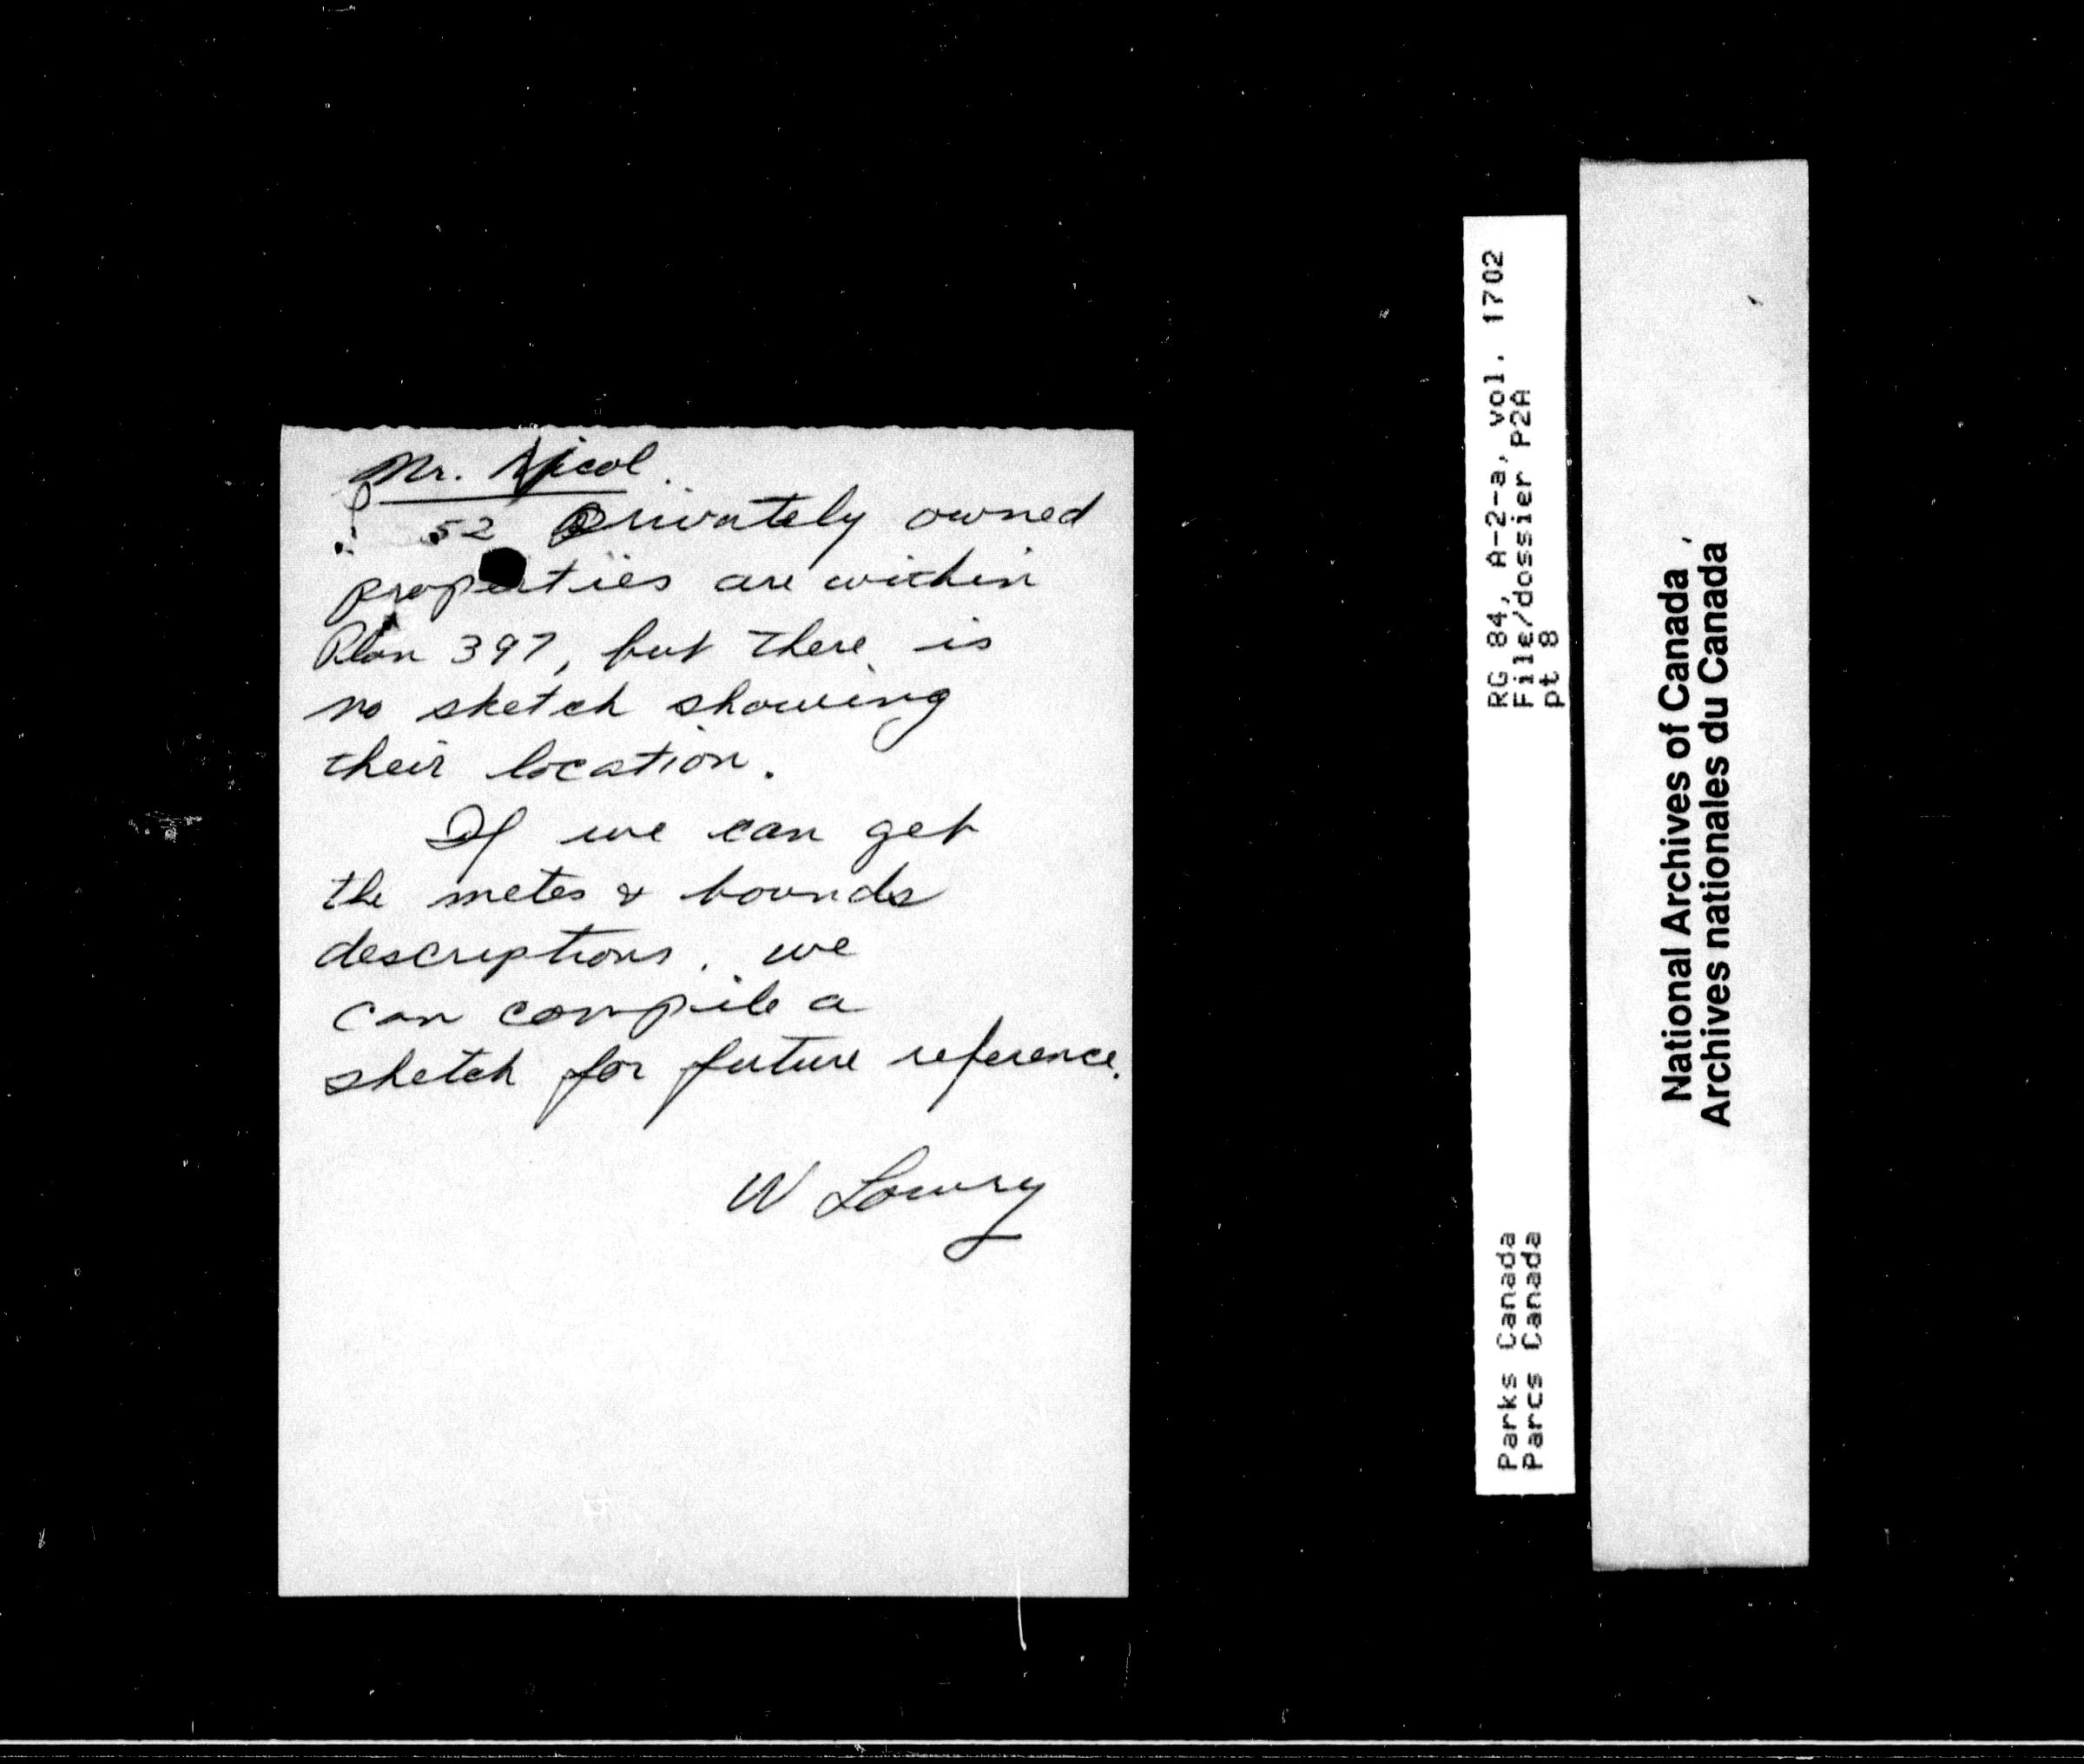 Mr. Nicol.
52 Privately owned
properties are within
Plan 397, but there is
no sketch showing
their location.
If we can get
the metes & bounds
descriptions, we
can compile a
sketch for future reference.
W Lowry
RG 84, A-2-a, vol. 1702
File/dossier P2A
pt 8
Parks Canada
Parcs Canada
National Archives of Canada
Archives nationales du Canada